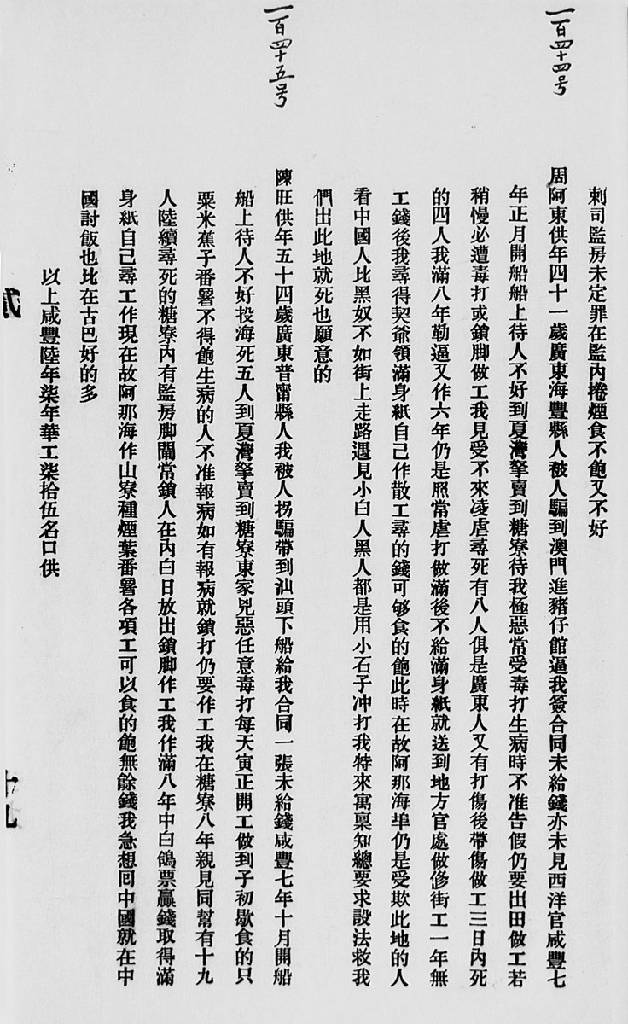 一百四十四号
刺司監房未定罪在監內捲煙食不飽又不好
周阿東供年四十一歲廣東海豐縣人被人騙到澳門進豬仔館逼我簽合同未給錢亦未見西洋官咸豐七
年正月開船船上待人不好到夏灣拏賣到糖寮待我極惡當受毒打生病時不准告假仍要出田做工若
稍慢必遭毒打或鎖脚做工我見受不來凌虐尋死有八人俱是廣東人又有打傷後帶傷做工三日內死
的四人我滿八年勒逼又作六年仍是照常虐打做滿後不給滿身紙就送到地方官處做修街工一年無
工錢後我尋得契爺領滿身紙自己作散工尋的錢可够食的飽此時在故阿那海埠仍是受欺此地的人
看中國人比黑奴不如街上走路遇見小白人黑人都是用小石子冲打我特來寓稟知總要求設法救我
們出此地就死也願意的
一百四十五号
陳旺供年五十四歲廣東普甯縣人我被人拐騙帶到汕頭下船給我合同一張未給錢咸豐七年十月開船
船上待人不好投海死五人到夏灣拏賣到糖寮東家兇惡任意毒打每天寅正開工做到子初歇食的只
粟米蕉子番薯不得飽生病的人不准報病如有報病就鎖打仍要作工我在糖寮八年親見同幫有十九
人陸續尋死的糖寮內有監房脚閘常鎖人在內白日放出鎖脚作工我作滿八年中白鴿票贏錢取得滿
身紙自己尋工作現在故阿那海作山寮種煙葉番薯各項工可以食的飽無餘錢我急想回中國就在中
國討飯也比在古巴好的多
以上咸豐陸年柒年華工柒拾伍名口供
貳
十九